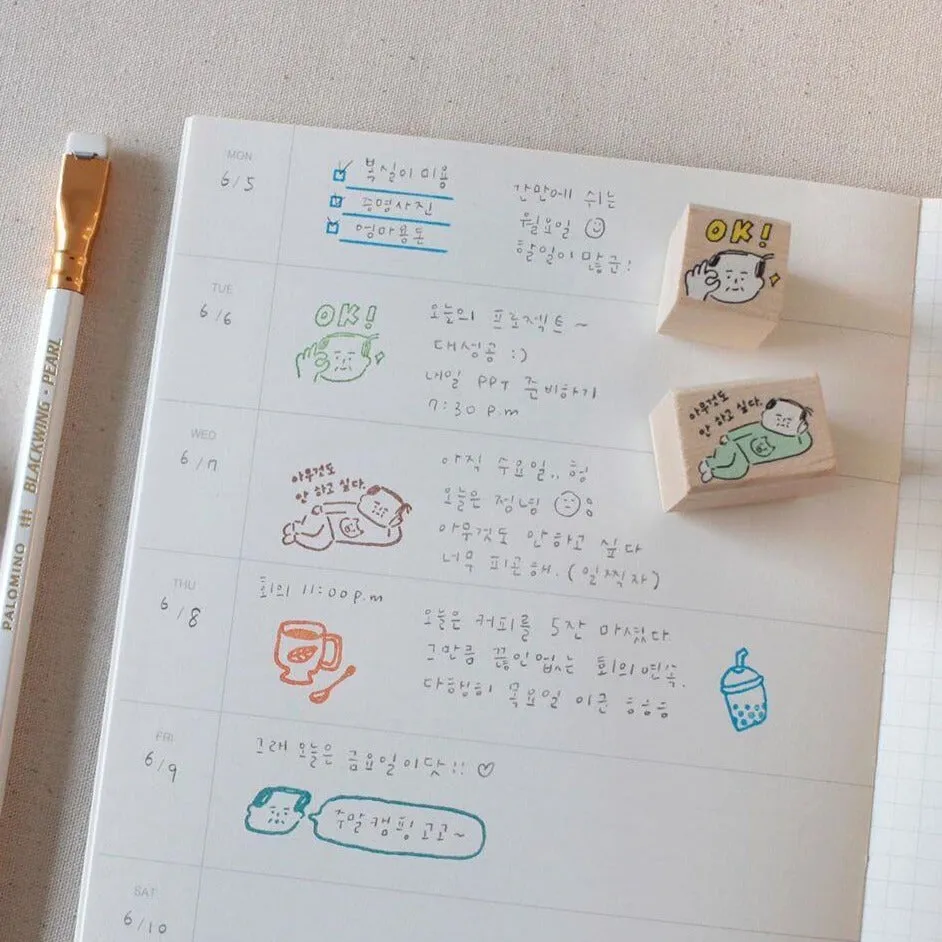 MON
6/5
복실이 미용
증명사진
엄마용돈
간만에 쉬는
월요일
할일이 많군!
OK!
TUE
6/6
OK!
오늘의 프로젝트~
대성공 :)
내일 PPT 준비하기
7:30 p.m
아무것도
안 하고 싶다.
WED
6/7
아무것도
안 하고 싶다.
아직 수요일.. 헝
오늘은 정녕
아무것도 안하고 싶다
너무 피곤해. (일찍자)
THU
6/8
회의 11:00p.m
오늘은 커피를 5잔 마셨다
그만큼 끊임없는 회의연속.
다행히 목요일 이군 흐흐흐
FRI
6/9
그래 오늘은 금요일이닷!! ♡
주말캠핑고고~
SAT
6/10
PALOMINO BLACKWING · PEARL